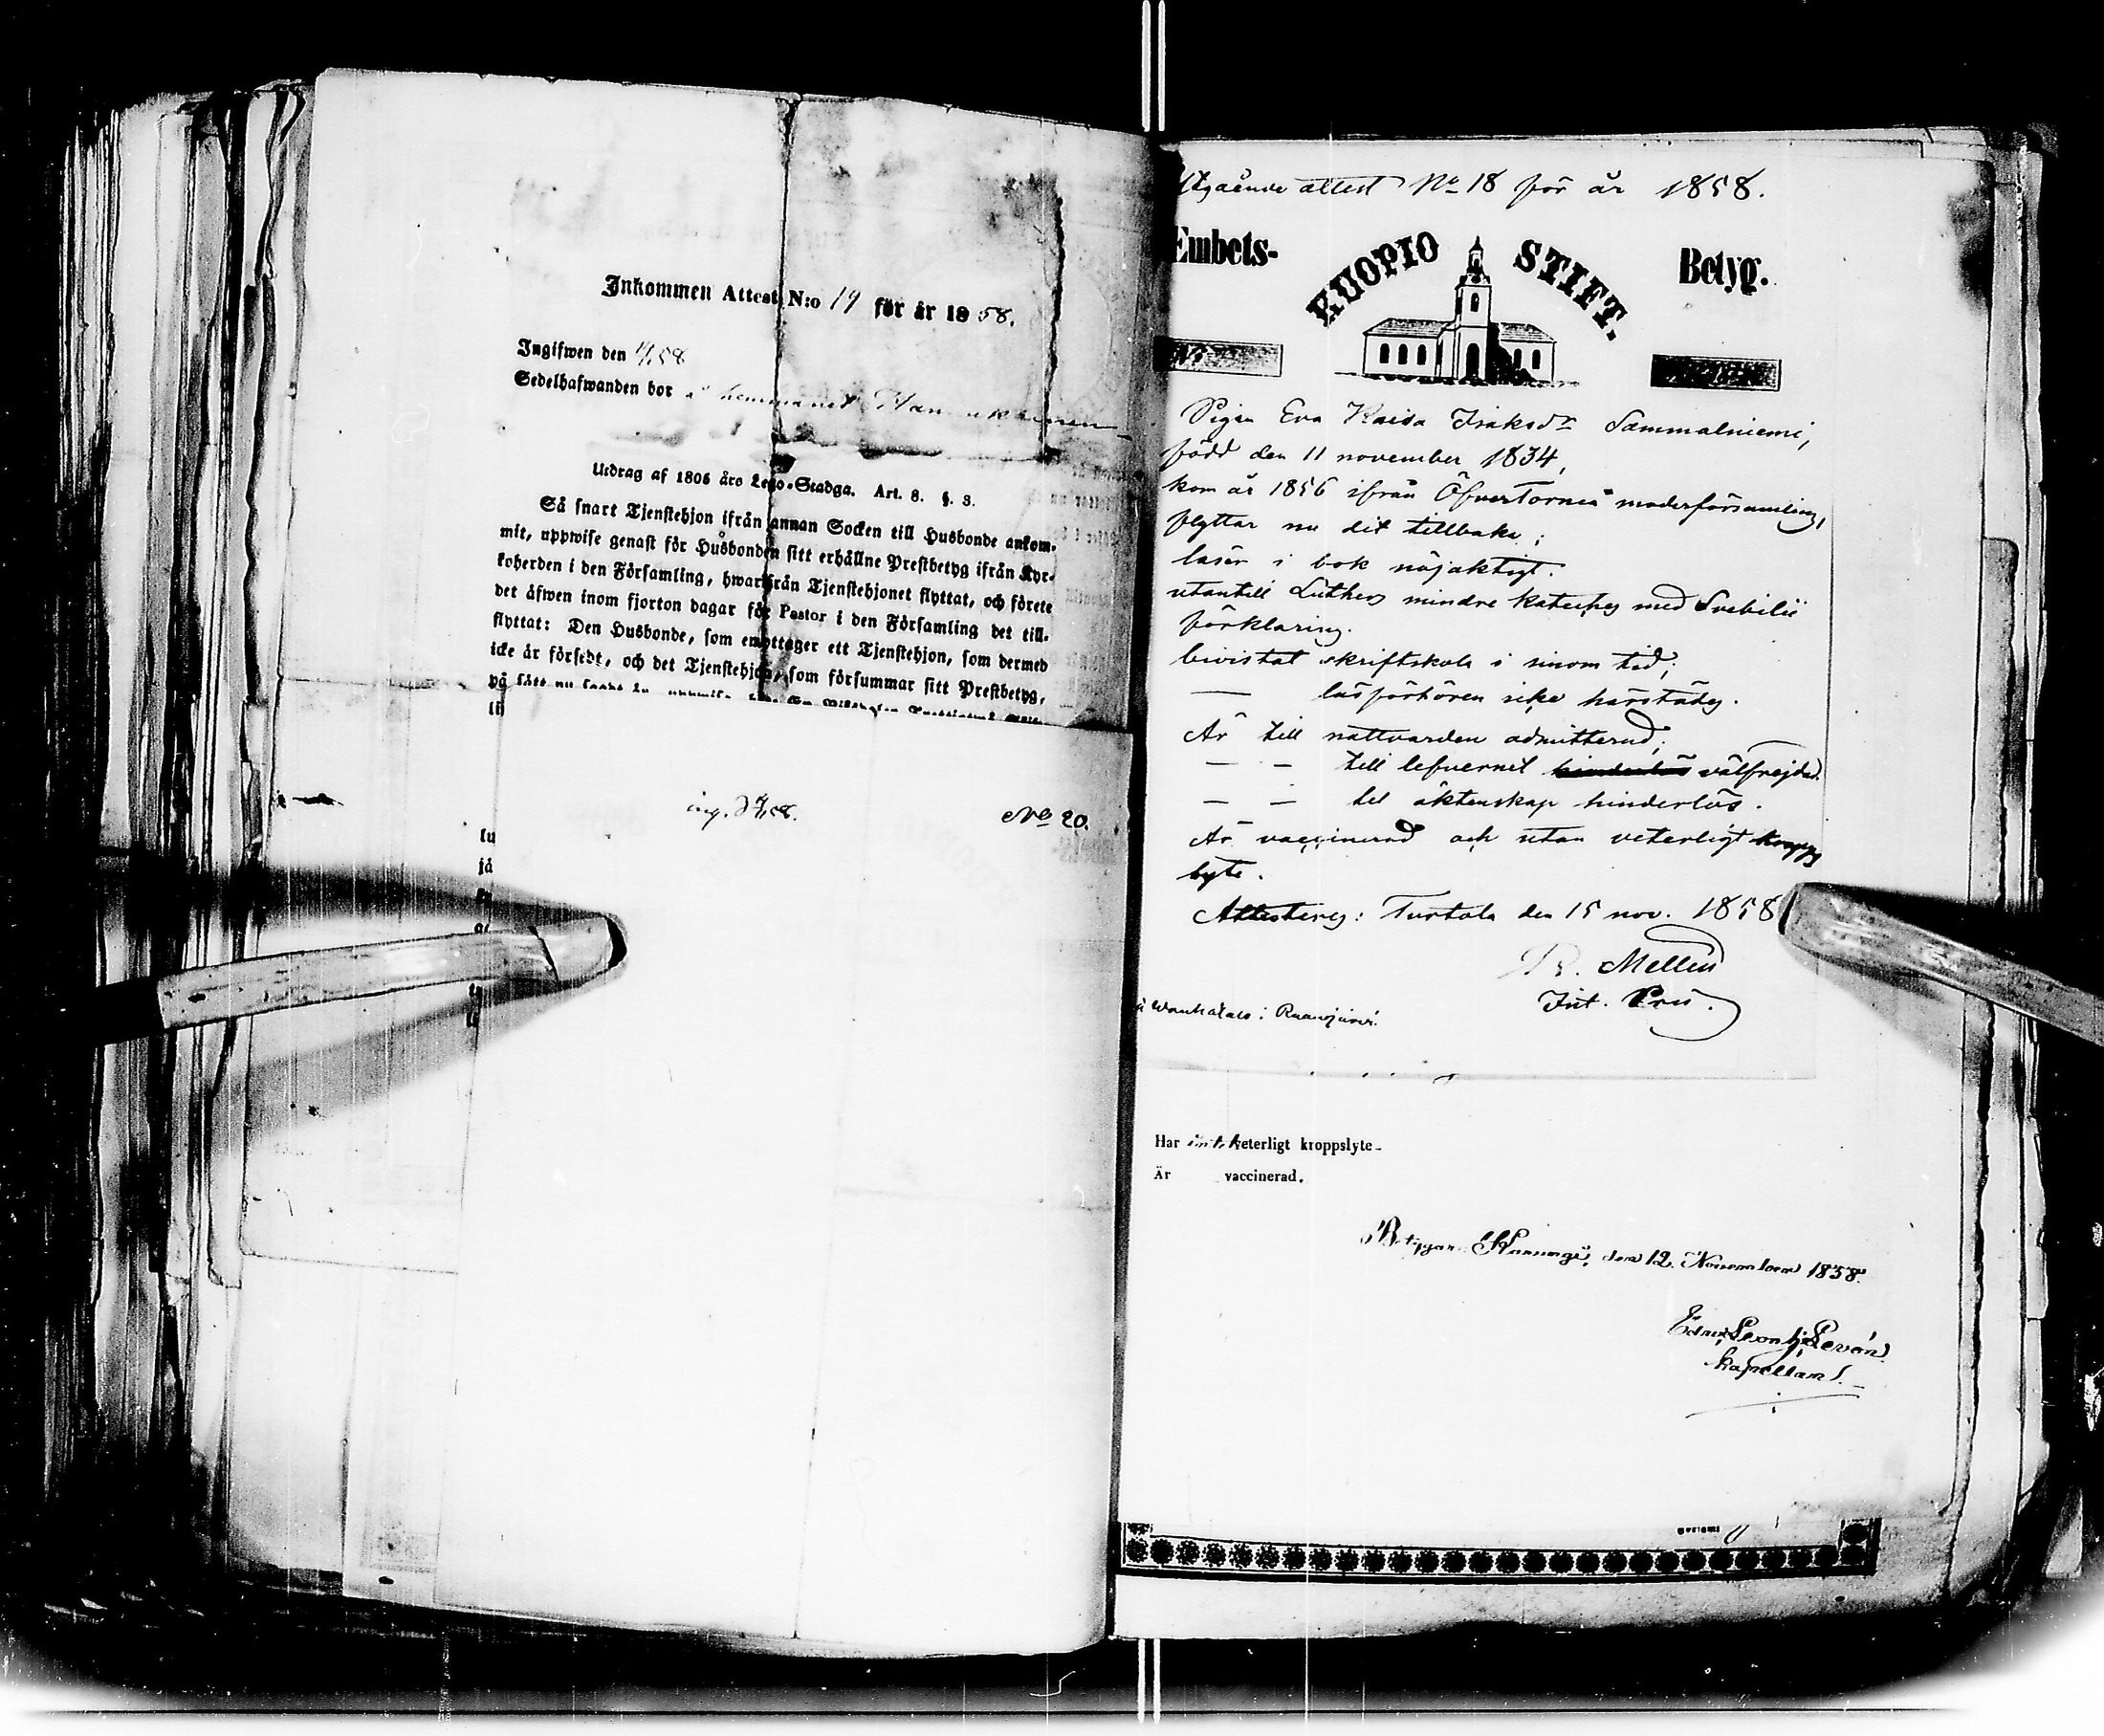 Inkommen Attest N:o 19 för år 1858.
Ingifwen den 58
Sedelhafwanden bor å hemmanet
Utdrag af 1805 års Lego-Stadga. Art. 8. §. 3.
Så snart Tjenstehjon ifrån annan Socken till Husbonde ankom-
mit, uppwise genast för Husbonden sitt erhållne Prestbetyg ifrån Kyr-
koherden i den Församling, hwarifrån Tjenstehjonet flyttat, och förete
det äfwen inom fjorton dagar för Pastor i den Församling det till-
flyttat: Den Husbonde, som emottager ett Tjenstehjon, som dermed
icke är försedt, och det Tjenstehjon, som försummar sitt Prestbetyg,
på sätt nu sagdt är, uppwise
li
ing. 58.
No 20.
tu
jå
Utgående attest No 18 för år 1858.
Embets-
KUOPIO STIFT.
Betyg.
No
Pigan Eva Kaisa Isaksdr Sammalniemi,
född den 11 november 1834,
kom år 1856 ifrån Öfvertorneå moderförsamling,
flyttar nu dit tillbaka;
läser i bok nöjaktigt.
utantill Luthers mindre kateches med Svebilii
förklaring.
bevistat skriftskola i sinom tid;
— läsförhören icke härstädes.
Är till nattvarden admitterad;
— — till lefvernet hinderlös välfrejdad.
— — till äktenskap hinderlös.
Är vaccinerad och utan veterligt kropps
lyte.
Attesteras: Turtola den 15 nov. 1858
Mellin
Int. Pred.
å i Raanujärvi.
Har intet veterligt kroppslyte.
Är vaccinerad.
Betygar Karungi, den 12. November 1858.
Levón
Kapellan.